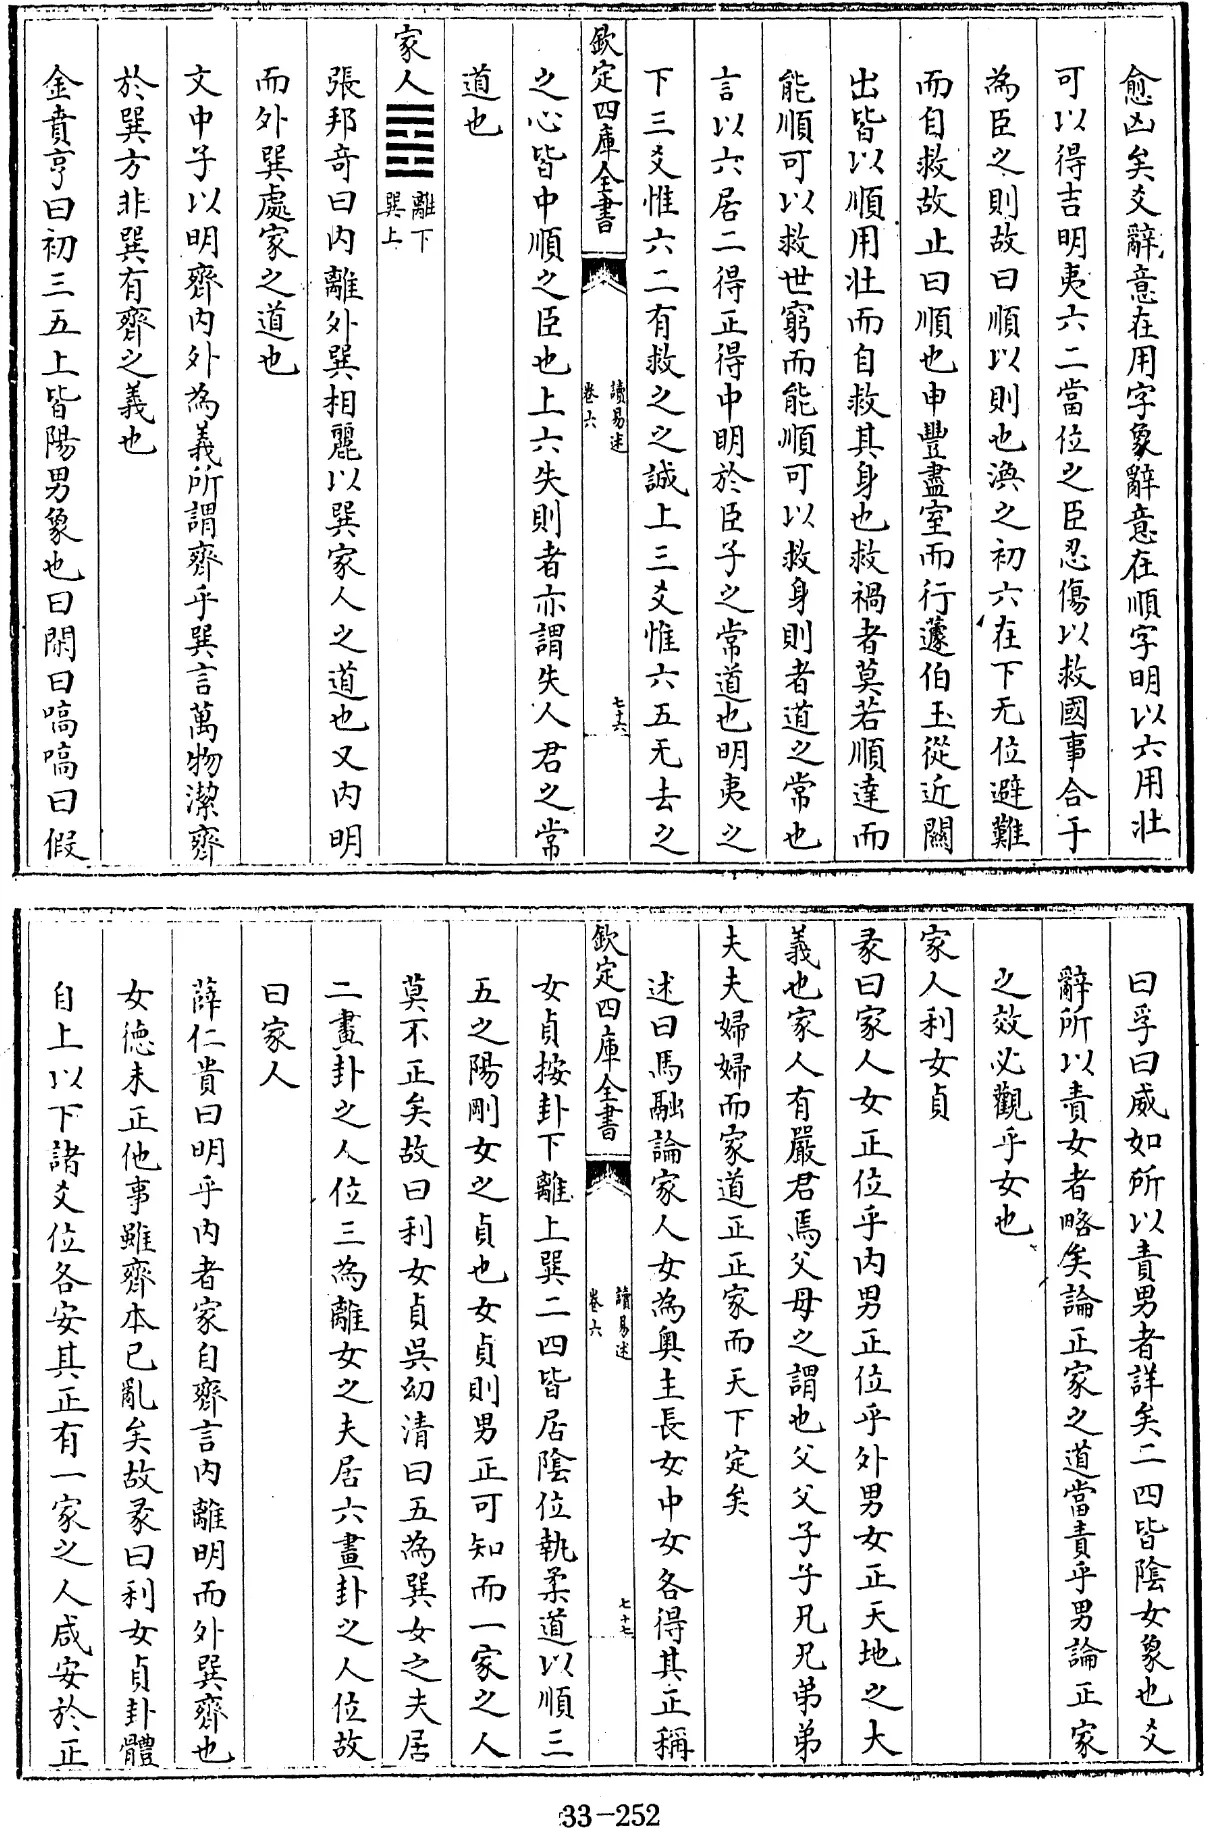 愈凶矣爻辭意在用字象辭意在順字明以六用壯
可以得吉明夷六二當位之臣忍傷以救國事合于
為臣之則故曰順以則也渙之初六在下无位避難
而自救故止曰順也申豐盡室而行蘧伯玉從近關
出皆以順用壯而自救其身也救禍者莫若順達而
能順可以救世窮而能順可以救身則者道之常也
言以六居二得正得中明於臣子之常道也明夷之
下三爻惟六二有救之之誠上三爻惟六五无去之
欽定四庫全書
讀易述
卷六
七十六
之心皆中順之臣也上六失則者亦謂失人君之常
道也
家人䷤離下
巽上
張邦奇曰內離外巽相麗以巽家人之道也又內明
而外巽處家之道也
文中子以明齊內外為義所謂齊乎巽言萬物潔齊
於巽方非巽有齊之義也
金賁亨曰初三五上皆陽男象也曰閑曰嗃嗃曰假
曰孚曰威如所以責男者詳矣二四皆陰女象也爻
辭所以責女者略矣論正家之道當責乎男論正家
之效必觀乎女也
家人利女貞
彖曰家人女正位乎內男正位乎外男女正天地之大
義也家人有嚴君焉父母之謂也父父子子兄兄弟弟
夫夫婦婦而家道正正家而天下定矣
述曰馬融論家人女為奧主長女中女各得其正稱
欽定四庫全書
讀易述
卷六
七十七
女貞按卦下離上巽二四皆居陰位執柔道以順三
五之陽剛女之貞也女貞則男正可知而一家之人
莫不正矣故曰利女貞吳幼清曰五為巽女之夫居
二畫卦之人位三為離女之夫居六畫卦之人位故
曰家人
薛仁貴曰明乎內者家自齊言內離明而外巽齊也
女德未正他事雖齊本已亂矣故彖曰利女貞卦體
自上以下諸爻位各安其正有一家之人咸安於正
33-252